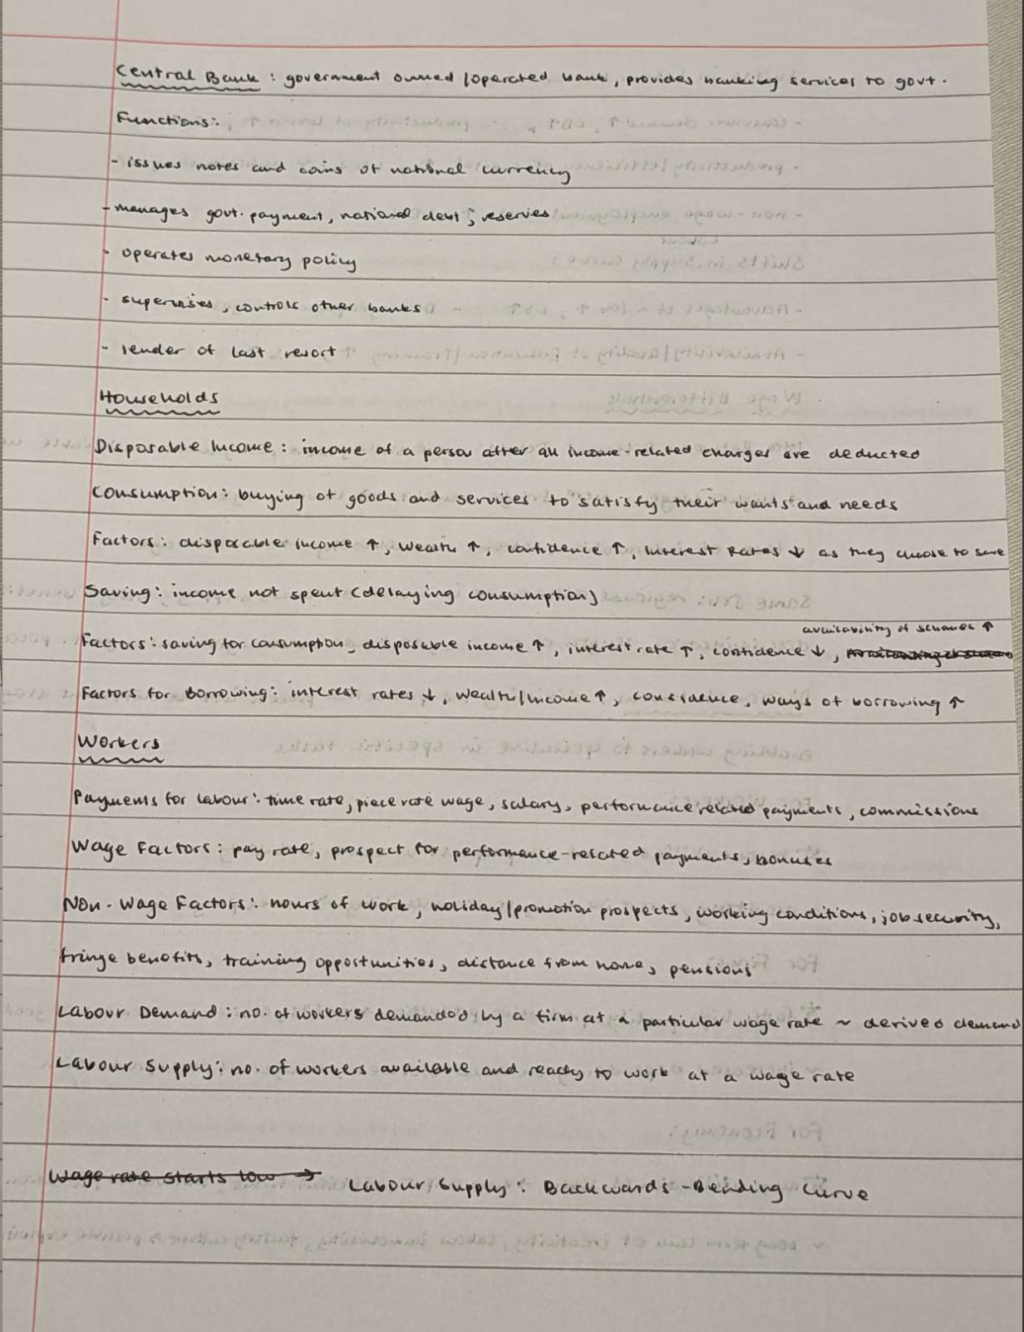 Central Bank : government owned / operated bank, provides banking services to govt.
Functions:
- issues notes and coins of national currency
- manages govt. payment, national debt, reserves
- operates monetary policy
- supervises, controls other banks
- lender of last resort
Households
Disposable Income : income of a person after all income-related charges are deducted
Consumption : buying of goods and services to satisfy their wants and needs
Factors : disposable income ↑, wealth ↑, confidence ↑, Interest Rates ↓ as they choose to save
Saving : income not spent (delaying consumption)
availability of schemes ↑
Factors : saving for consumption, disposable income ↑, interest rate ↑, confidence ↓,
Factors for Borrowing : interest rates ↓, wealth/income ↑, confidence, ways of borrowing ↑
Workers
Payments for Labour : time rate, piece rate wage, salary, performance related payments, commissions
Wage Factors : pay rate, prospect for performance-related payments, bonuses
Non-Wage Factors : hours of work, holiday/promotion prospects, working conditions, job security,
fringe benefits, training opportunities, distance from home, pensions
Labour Demand : no. of workers demanded by a firm at a particular wage rate ~ derived demand
Labour Supply : no. of workers available and ready to work at a wage rate
Wage rate starts low → Labour Supply : Backwards-Bending Curve